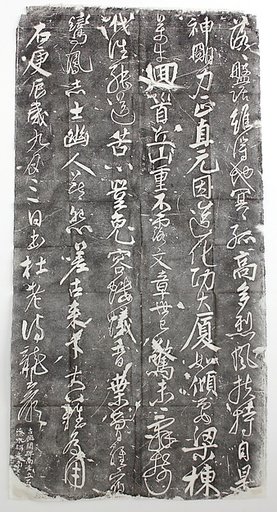 落落盤踞雖得地冥冥孤高多烈風扶持自是
神明力正直元因造化功大廈如傾要梁棟
萬牛迴首丘山重不露文章世已驚未辭剪
伐誰能送苦心豈免容螻蟻香葉曾經宿
鸞鳳志士幽人莫怨嗟古來材大難為用
右庚辰歲九月三日書杜老詩